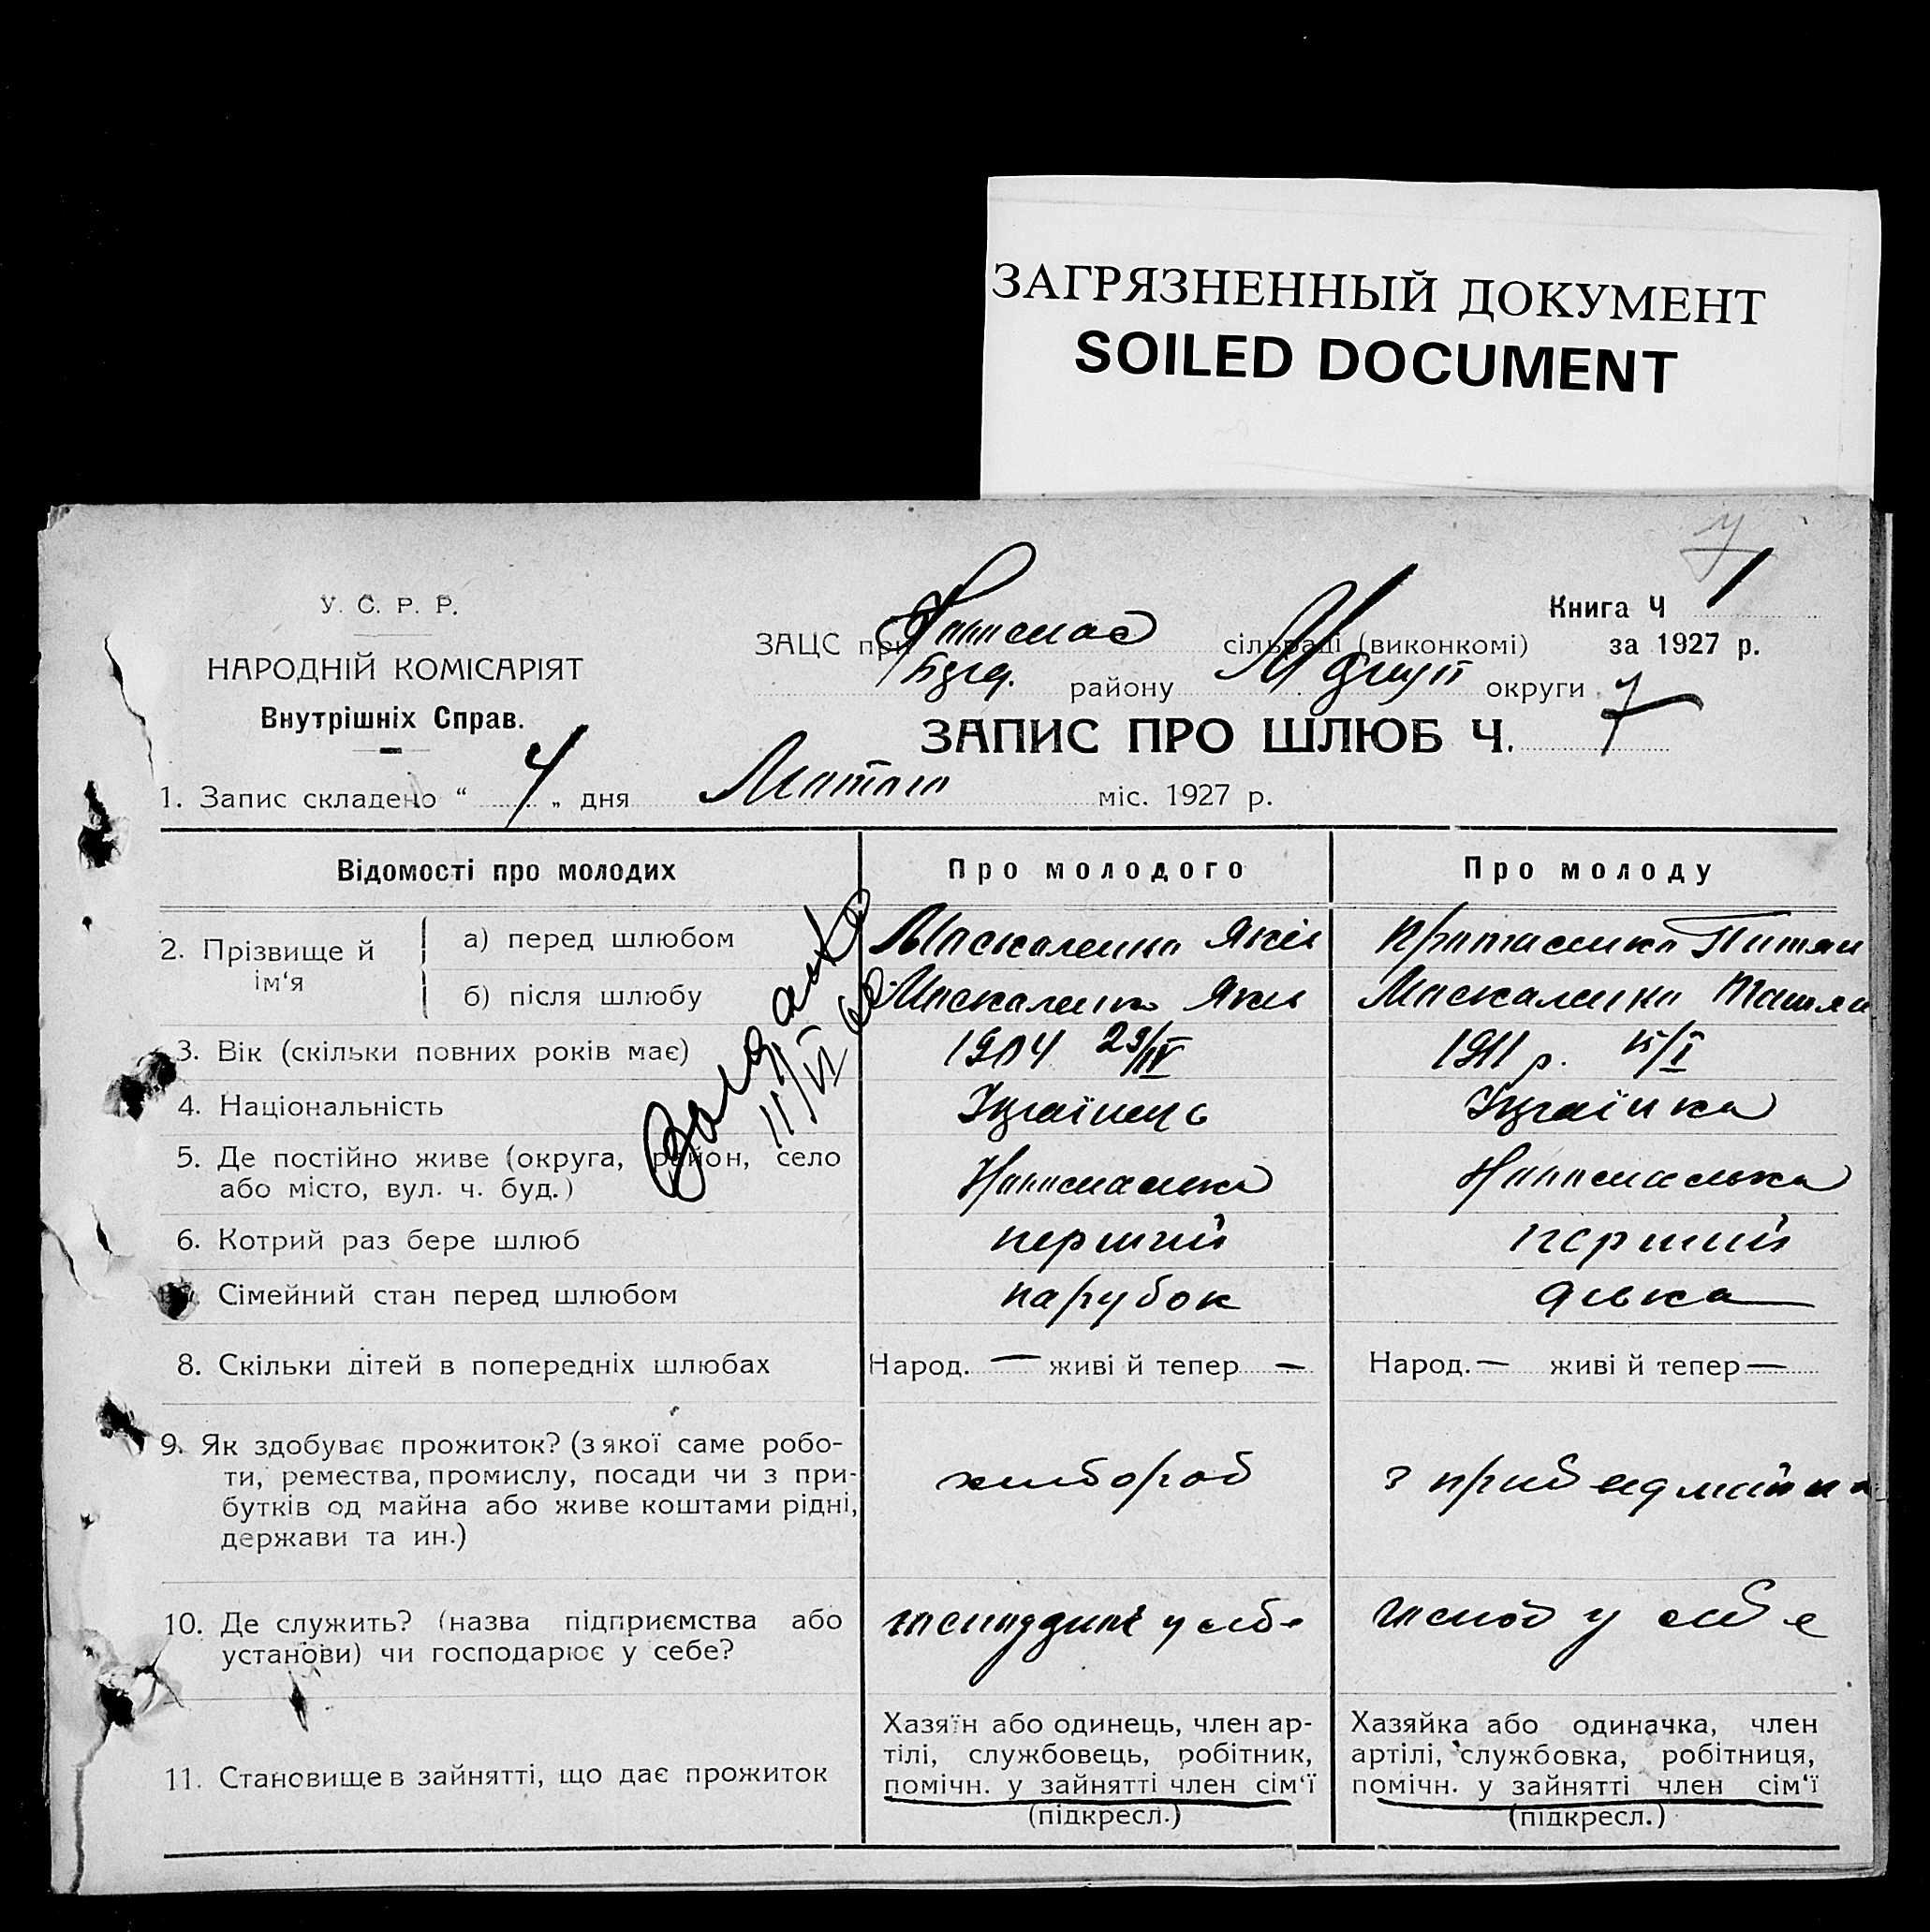 ЗАГРЯЗНЕННЫЙ ДОКУМЕНТ
SOILED DOCUMENT
У. С. Р. Р.
НАРОДНІЙ КОМІСАРІЯТ
Внутрішніх Справ.
Книга Ч 1
ЗАЦС при сільраді (виконкомі) за 1927 р.
району округи
ЗАПИС ПРО ШЛЮБ Ч. 7
1. Запис складено “ 4 „ дня Лютого міс. 1927 р.
Відомості про молодих Про молодого Про молоду
2. Прізвище й ім‘я
а) перед шлюбом Маскаленко Яків
б) після шлюбу Маскаленко Яків Маскаленко
3. Вік (скільки повних років має) 1904 23/IV 1911 р. 15/I
4. Національність Украінець Украінка
5. Де постійно живе (округа, район, село
або місто, вул. ч. буд.)
6. Котрий раз бере шлюб перший перший
Сімейний стан перед шлюбом парубок дівка
8. Скільки дітей в попередніх шлюбах Народ. — живі й тепер — Народ. — живі й тепер —
9. Як здобуває прожиток? (з якої саме робо-
ти, ремества, промислу, посади чи з при-
бутків од майна або живе коштами рідні,
держави та ин.)
хлібороб
10. Де служить? (назва підприємства або
установи) чи господарює у себе?
у себе
у себе
11. Становище в зайнятті, що дає прожиток
Хазяїн або одинець, член ар-
тілі, службовець, робітник,
помічн. у зайнятті член сім‘ї
(підкресл.)
Хазяйка або одиначка, член
артілі, службовка, робітниця,
помічн. у зайнятті член сім‘ї
(підкресл.)